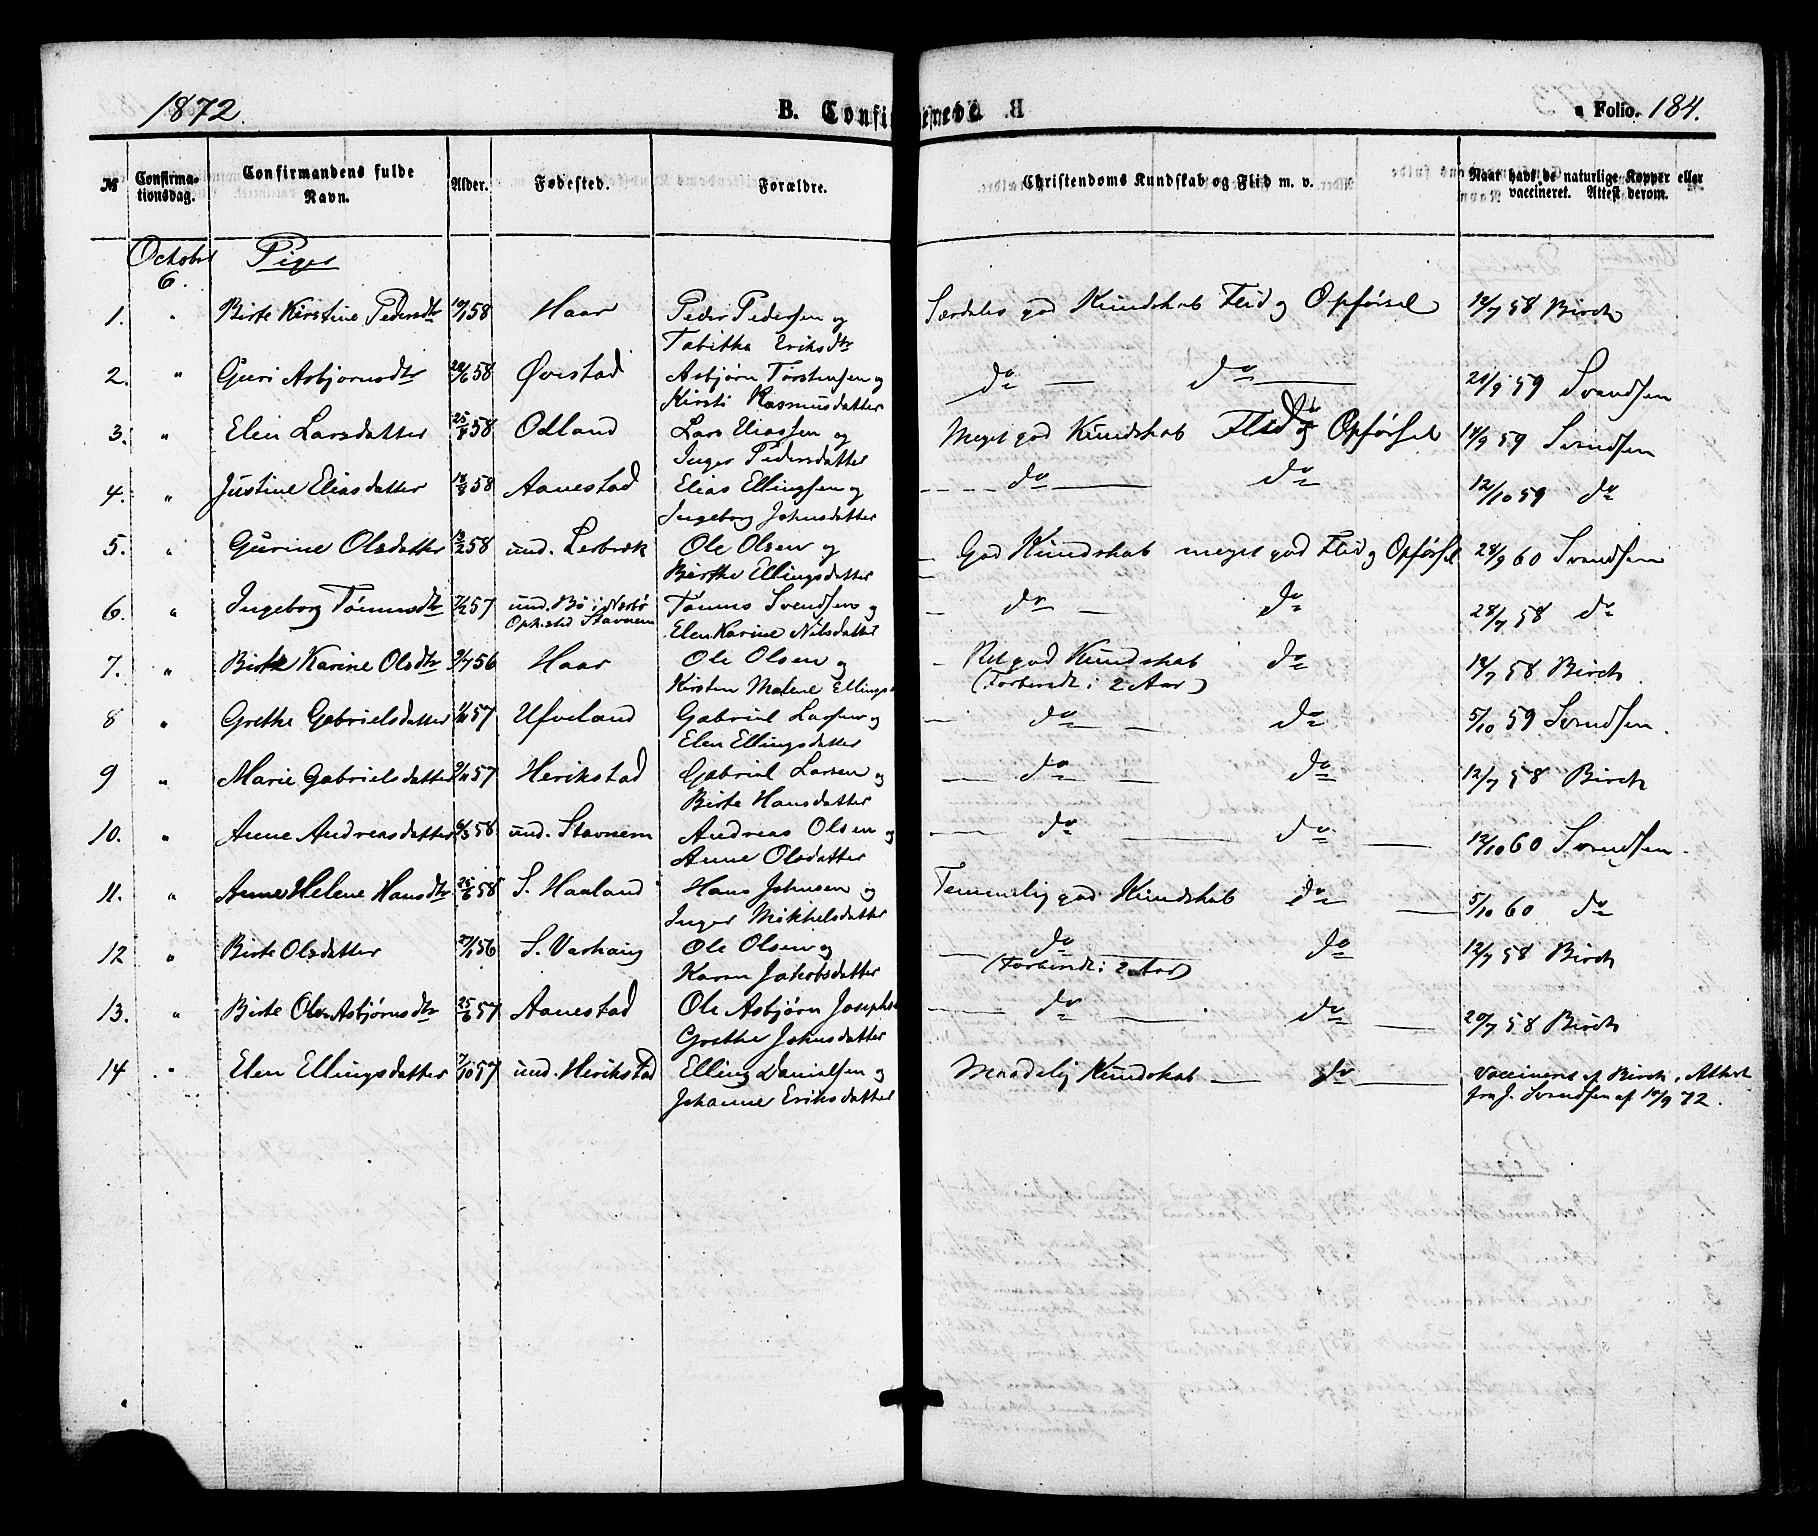 1872.
B. Confirmerede.
Folio. 184.
№ Confirma-tionsdag. Confirmandens fulde Navn. Alder. Fødested. Forældre. Christendoms Kundskab og Flid m. v. Naar havt de naturlige Kopper eller vaccineret. Attest derom.
Octobr 6. Piger
1. " Birte Kirstine Pedersdtr 58 Haar Peder Pedersen og Særdeles god Kundskab Flid og Opførsel 12/7 58 Birch
Tabitha Eriksdtr
2. " Guri Asbjornsdtr 58 Øvestad Asbjørn Torstensen og do — do — 21/9 59 Svendsen
Kirsti Rasmusdatter
3. " Elen Larsdatter 58 Odland Lars Eliassen og Meget god Kundskab Flid og Opførsel 14/9 59 Svendsen
Inger Pedersdatter
4. " Justine Eliasdatter 58 Aanestad Elias Ellingsen og do — do 12/10 59 do
Ingeborg Johnsdatter
5. " Gurine Olsdatter 58 und. Lerbræk Ole Olsen og God Kundskab meget god Flid og Opførsel 28/9 60 Svendsen
Birthe Ellingsdatter
6. " Ingeborg Tønnesdtr 57 und. Bø i Nærbø Tønnes Svendsen og do — do 28/7 58 do
Oph.sted Stavnem Elen Karine Nilsdatter
7. " Birte Karine Olsdtr 9/7 56 Haar Ole Olsen og Ret god Kundskab do 12/7 58 Birch
Kirsten Malene Ellings (Forberedt i 2 Aar)
8 " Grethe Gabrielsdatter 57 Ufveland Gabriel Larsen og do do 5/10 59 Svendsen.
Elen Ellingsdatter
9 " Marie Gabrielsdatter 57 Herikstad Gabriel Larsen og do do 12/7 58 Birch
Birte Hansdatter
10. " Anne Andreasdatter 58 und. Stavnem Andreas Olsen og do do 12/10 60 Svendsen.
Anne Olsdatter
11. " Anne Helene Hansdtr 25/6 58 S. Haaland Hans Johnsen og Temmelig god Kundskab do 5/10 60 do
Inger Mikkelsdatter
12 " Birte Olsdatter 56 S. Varhaug Ole Olsen og do do 12/7 58 Birch
Karen Jakobsdatter (Forberedt i 2 Aar)
13. " Birte Olea Asbjørnsdtr 25/6 57 Aanestad Ole Asbjørn Josephs do do 20/7 58 Birch
Grethe Johnsdatter
14 " Elen Ellingsdatter 7/10 57 und. Herikstad Elling Danielsen og Maadelig Kundskab do Vaccineret af Birch, Attest
Johanne Eriksdatter fra J. Svendsen af 10/9 72.